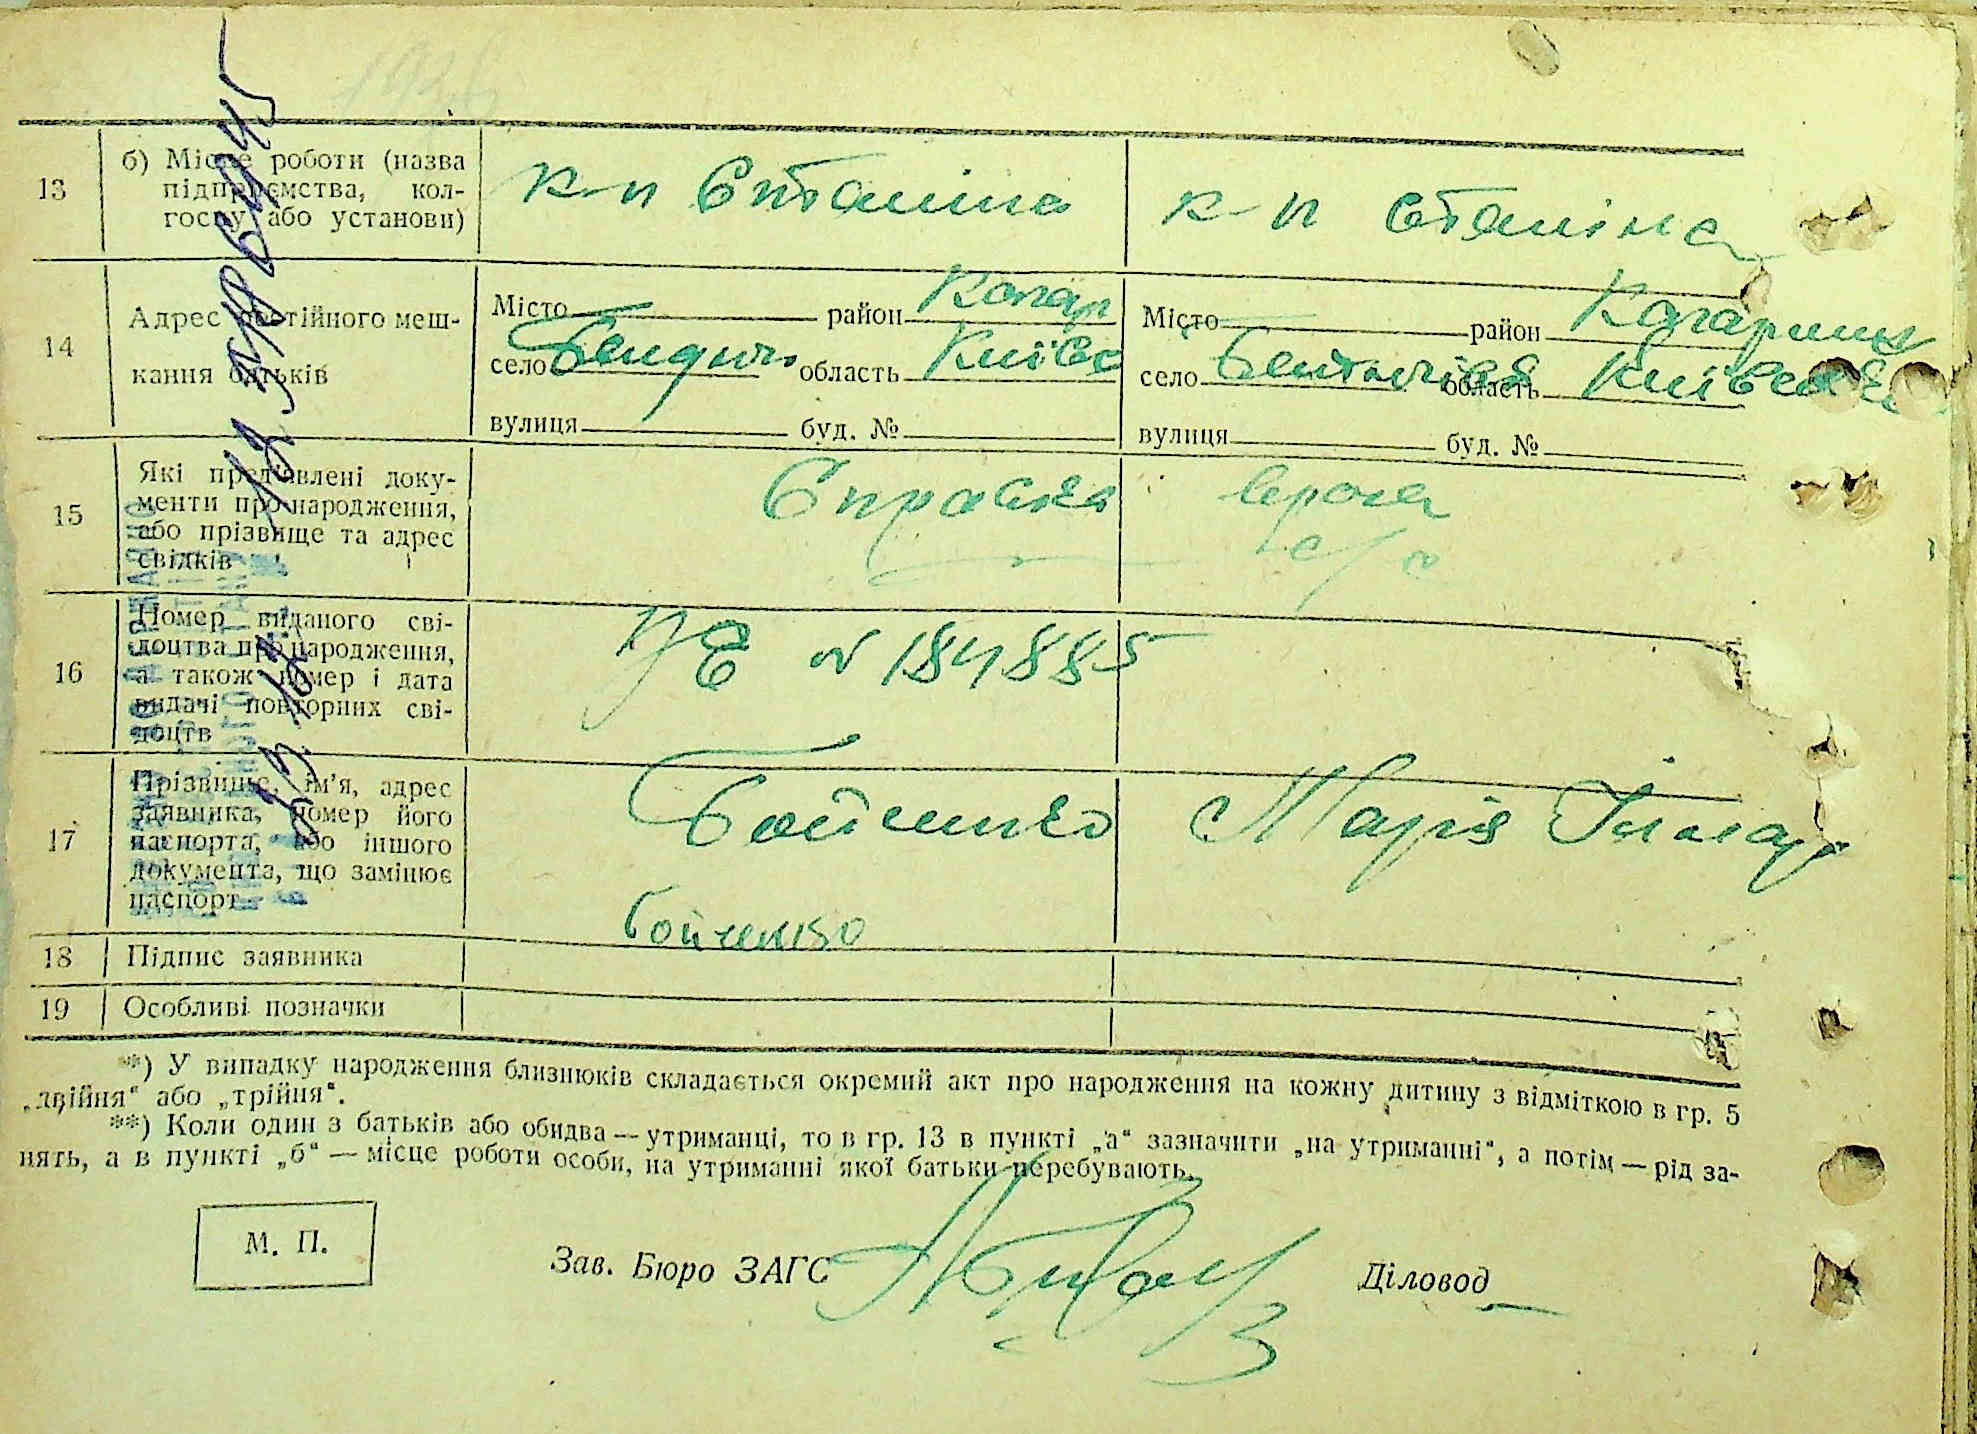 13
б) Місце роботи (назва
підприємства, кол-
госпу або установи)
к-п Сталіна
к-п Сталіна
14
Адрес постійного меш-
кання батьків
Місто район Кагар
село область Київс
вулиця буд. №
Місто район Кагарлиц
село область Київська
вулиця буд. №
15
Які пред'явлені доку-
менти про народження,
або прізвище та адрес
свідків
Справка
16
Номер виданого сві-
доцтва про народження,
а також номер і дата
видачі повторних сві-
доцтв
№ 184885
17
Прізвище, ім'я, адрес
заявника, номер його
паспорта, або іншого
документа, що замінює
паспорт
Бойченко Марія
18
Підпис заявника
Бойченко
19
Особливі позначки
**) У випадку народження близнюків складається окремий акт про народження на кожну дитину з відміткою в гр. 5
„двійня“ або „трійня“.
**) Коли один з батьків або обидва — утриманці, то в гр. 13 в пункті „а“ зазначити „на утриманні“, а потім — рід за-
нять, а в пункті „б“ — місце роботи особи, на утриманні якої батьки перебувають.
М. П.
Зав. Бюро ЗАГС
Діловод